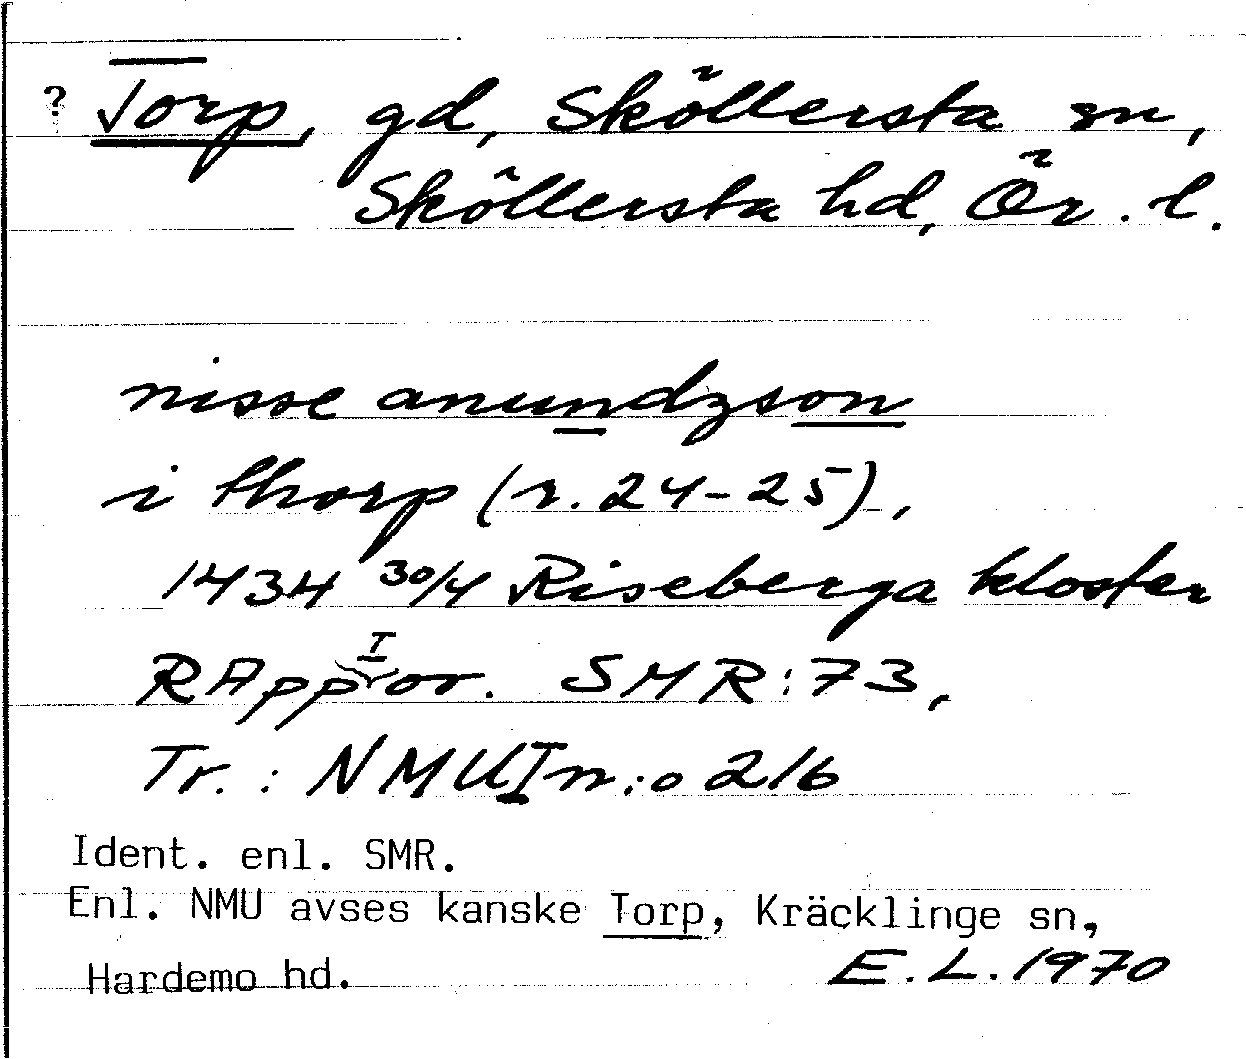 ? Torp, gd, Sköllersta sn,
Sköllersta hd, Ör. l.
nisse anundzson
i thorp (r. 24-25),
1434 30/4 Riseberga kloster
RApp I or. SMR: 73,
Tr.: NMU I n:o 216
Ident. enl. SMR.
Enl. NMU avses kanske Torp, Kräcklinge sn,
Hardemo hd.
E.L. 1970